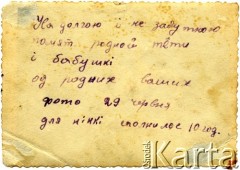 На долгою і не забутною
помят. родной тьоти
і бабушкі
од родних ваших
фото 29 червня
для нінкі сполнилос 10 год.
Ośrodek
Karta